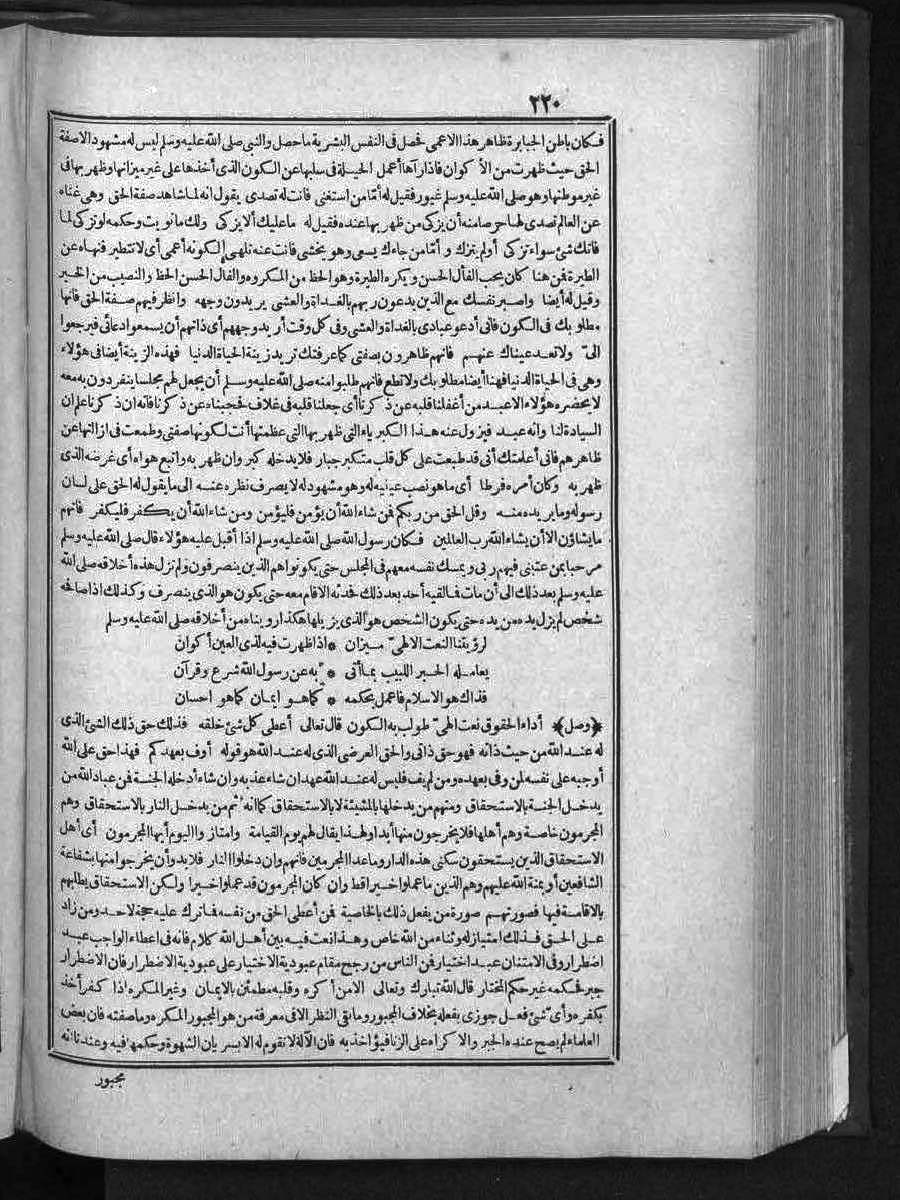 ٢٢٠
فكان باطن الجبابرة ظاهر هذا الاعمى فحصل فى النفس البشرية ما حصل والنبى صلى الله عليه وسلم ليس له مشهود الا صفة
الحق حيث ظهرت من الاكوان فاذا رآها أعمل الحيلة فى سلبها عن الكون الذى أخذها على غير ميزانها وظهر بها فى
غير موطنها وهو صلى الله عليه وسلم غيور فقيل له أما من استغنى فانت له تصدى يقول انه لما شاهد صفة الحق وهى غناه
عن العالم تصدى لها حرصا منه أن يزكى من ظهر بها عنده فقيل له وما عليك ألا يزكى ولك ما نويت وحكمه لو تزكى لما
فاتك شئ سواء تزكى أو لم يتزك وأما من جاءك يسعى وهو يخشى فانت عنه تلهى لكونه أعمى أى لا تتطير فنهاه عن
الطيرة فمن هنا كان يحب الفأل الحسن ويكره الطيرة وهو الحظ من المكروه والفال الحسن الحظ والنصيب من الخير
وقيل له أيضا واصبر نفسك مع الذين يدعون ربهم بالغداة والعشى يريدون وجهه وانظر فيهم صفة الحق فانها
مطلوبك فى الكون فانى أدعو عبادى بالغداة والعشى وفى كل وقت أريد وجههم أى ذاتهم أن يسمعوا دعائى فيرجعوا
الىّ ولا تعد عيناك عنهم فانهم ظاهرون بصفتى كما عرفتك تريد زينة الحياة الدنيا فهذه الزينة أيضا فى هؤلاء
وهى فى الحياة الدنيا فهنا أيضا مطلوبك ولا تطع فانهم طلبوا منه صلى الله عليه وسلم أن يجعل لهم مجلسا ينفردون به معه
لا يحضره هؤلاء الاعبد من أغفلنا قلبه عن ذكرنا أى جعلنا قلبه فى غلاف فحجبناه عن ذكرنا فانه ان ذكرنا علم ان
السيادة لنا وانه عبد فيزول عنه هذا الكبرياء التى ظهر بها التى عظمتها أنت لكونها صفتى وطمعت فى ازالتها عن
ظاهرهم فانى أعلمتك أنى قد طبعت على كل قلب متكبر جبار فلا يدخله كبر وان ظهر به واتبع هواه أى غرضه الذى
ظهر به وكان أمره فرطا أى ما هو نصب عينيه له وهو مشهود له لا يصرف نظره عنه الى ما يقول له الحق على لسان
رسوله وما يريده منه وقل الحق من ربكم فمن شاء الله أن يؤمن فليؤمن ومن شاء الله أن يكفر فليكفر فانهم
ما يشاؤن الا أن يشاء الله رب العالمين فكان رسول الله صلى الله عليه وسلم اذا أقبل عليه هؤلاء قال صلى الله عليه وسلم
مرحبا بمن عتبنى فيهم ربى ويمسك نفسه معهم فى المجلس حتى يكونوا هم الذين ينصرفون ولم تزل هذه أخلاقه صلى الله
عليه وسلم بعد ذلك الى أن مات فما لقيه أحد بعد ذلك فحدثه الا قام معه حتى يكون هو الذى ينصرف وكذلك اذا صافحه
شخص لم يزل يده من يده حتى يكون الشخص هو الذى يزيلها هكذا رويناه من أخلاقه صلى الله عليه وسلم
لرؤيتنا النعت الالهىّ ميزان * اذا ظهرت فيه لذى العين أكوان
يعامله الحبر اللبيب بما أتى * به عن رسول الله شرع وقرآن
فذاك هو الاسلام فاعمل بحكمه * كما هو ايمان كما هو احسان
﴿وصل﴾ أداء الحقوق نعت الهىّ طولب به الكون قال تعالى أعطى كل شئ خلقه فذلك حق ذلك الشئ الذى
له عند الله من حيث ذاته فهو حق ذاتى والحق العرضى الذى له عند الله هو قوله أوف بعهدكم فهذا حق على الله
أوجبه على نفسه لمن وفى بعهده ومن لم يف فليس له عند الله عهد ان شاء عذبه وان شاء أدخله الجنة فمن عباد الله من
يدخل الجنة بالاستحقاق ومنهم من يدخلها بالمشيئة لا بالاستحقاق كما انه ثم من يدخل النار بالاستحقاق وهم
المجرمون خاصة وهم أهلها فلا يخرجون منها أبدا ولهذا يقال لهم يوم القيامة وامتازوا اليوم أيها المجرمون أى أهل
الاستحقاق الذين يستحقون سكنى هذه الدار وما عدا المجرمين فانهم وان دخلوا النار فلا بد وأن يخرجوا منها بشفاعة
الشافعين أو بمنة الله عليهم وهم الذين ما عملوا خيرا قط وان كان المجرمون قد عملوا خيرا ولكن الاستحقاق يطلبهم
بالاقامة فيها فصورتهم صورة من يفعل ذلك بالخاصية فمن أعطى الحق من نفسه فما ترك عليه حجة لاحد ومن زاد
على الحق فذلك امتياز له وثناء من الله خاص وهذا نعت فيه بين أهل الله كلام فانه فى اعطاء الواجب عبد
اضطرار وفى الامتنان عبد اختيار فمن الناس من رجح مقام عبودية الاختيار على عبودية الاضطرار فان الاضطرار
جبر فحكمه غير حكم المختار قال الله تبارك وتعالى الا من أكره وقلبه مطمئن بالايمان وغير المكره اذا كفر أخذ
بكفره وأى شئ فعل جوزى بفعله بخلاف المجبور وما بقى النظر الا فى معرفة من هو المجبور المكره وما صفته فان بعض
العلماء لم يصح عنده الجبر والاكراه على الزنا فيؤاخذ به فان الآلة لا تقوم له الا بسريان الشهوة وحكمها فيه وعندنا انه
مجبور